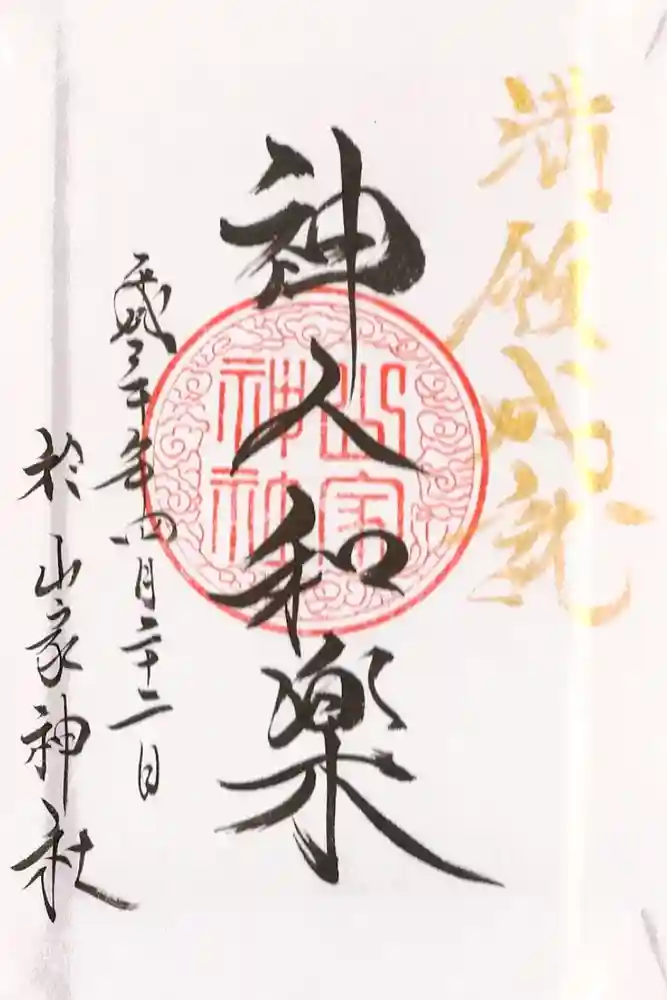 満願成就
神人和楽
山家
神社
平成三十年四月二十二日
於 山家神社